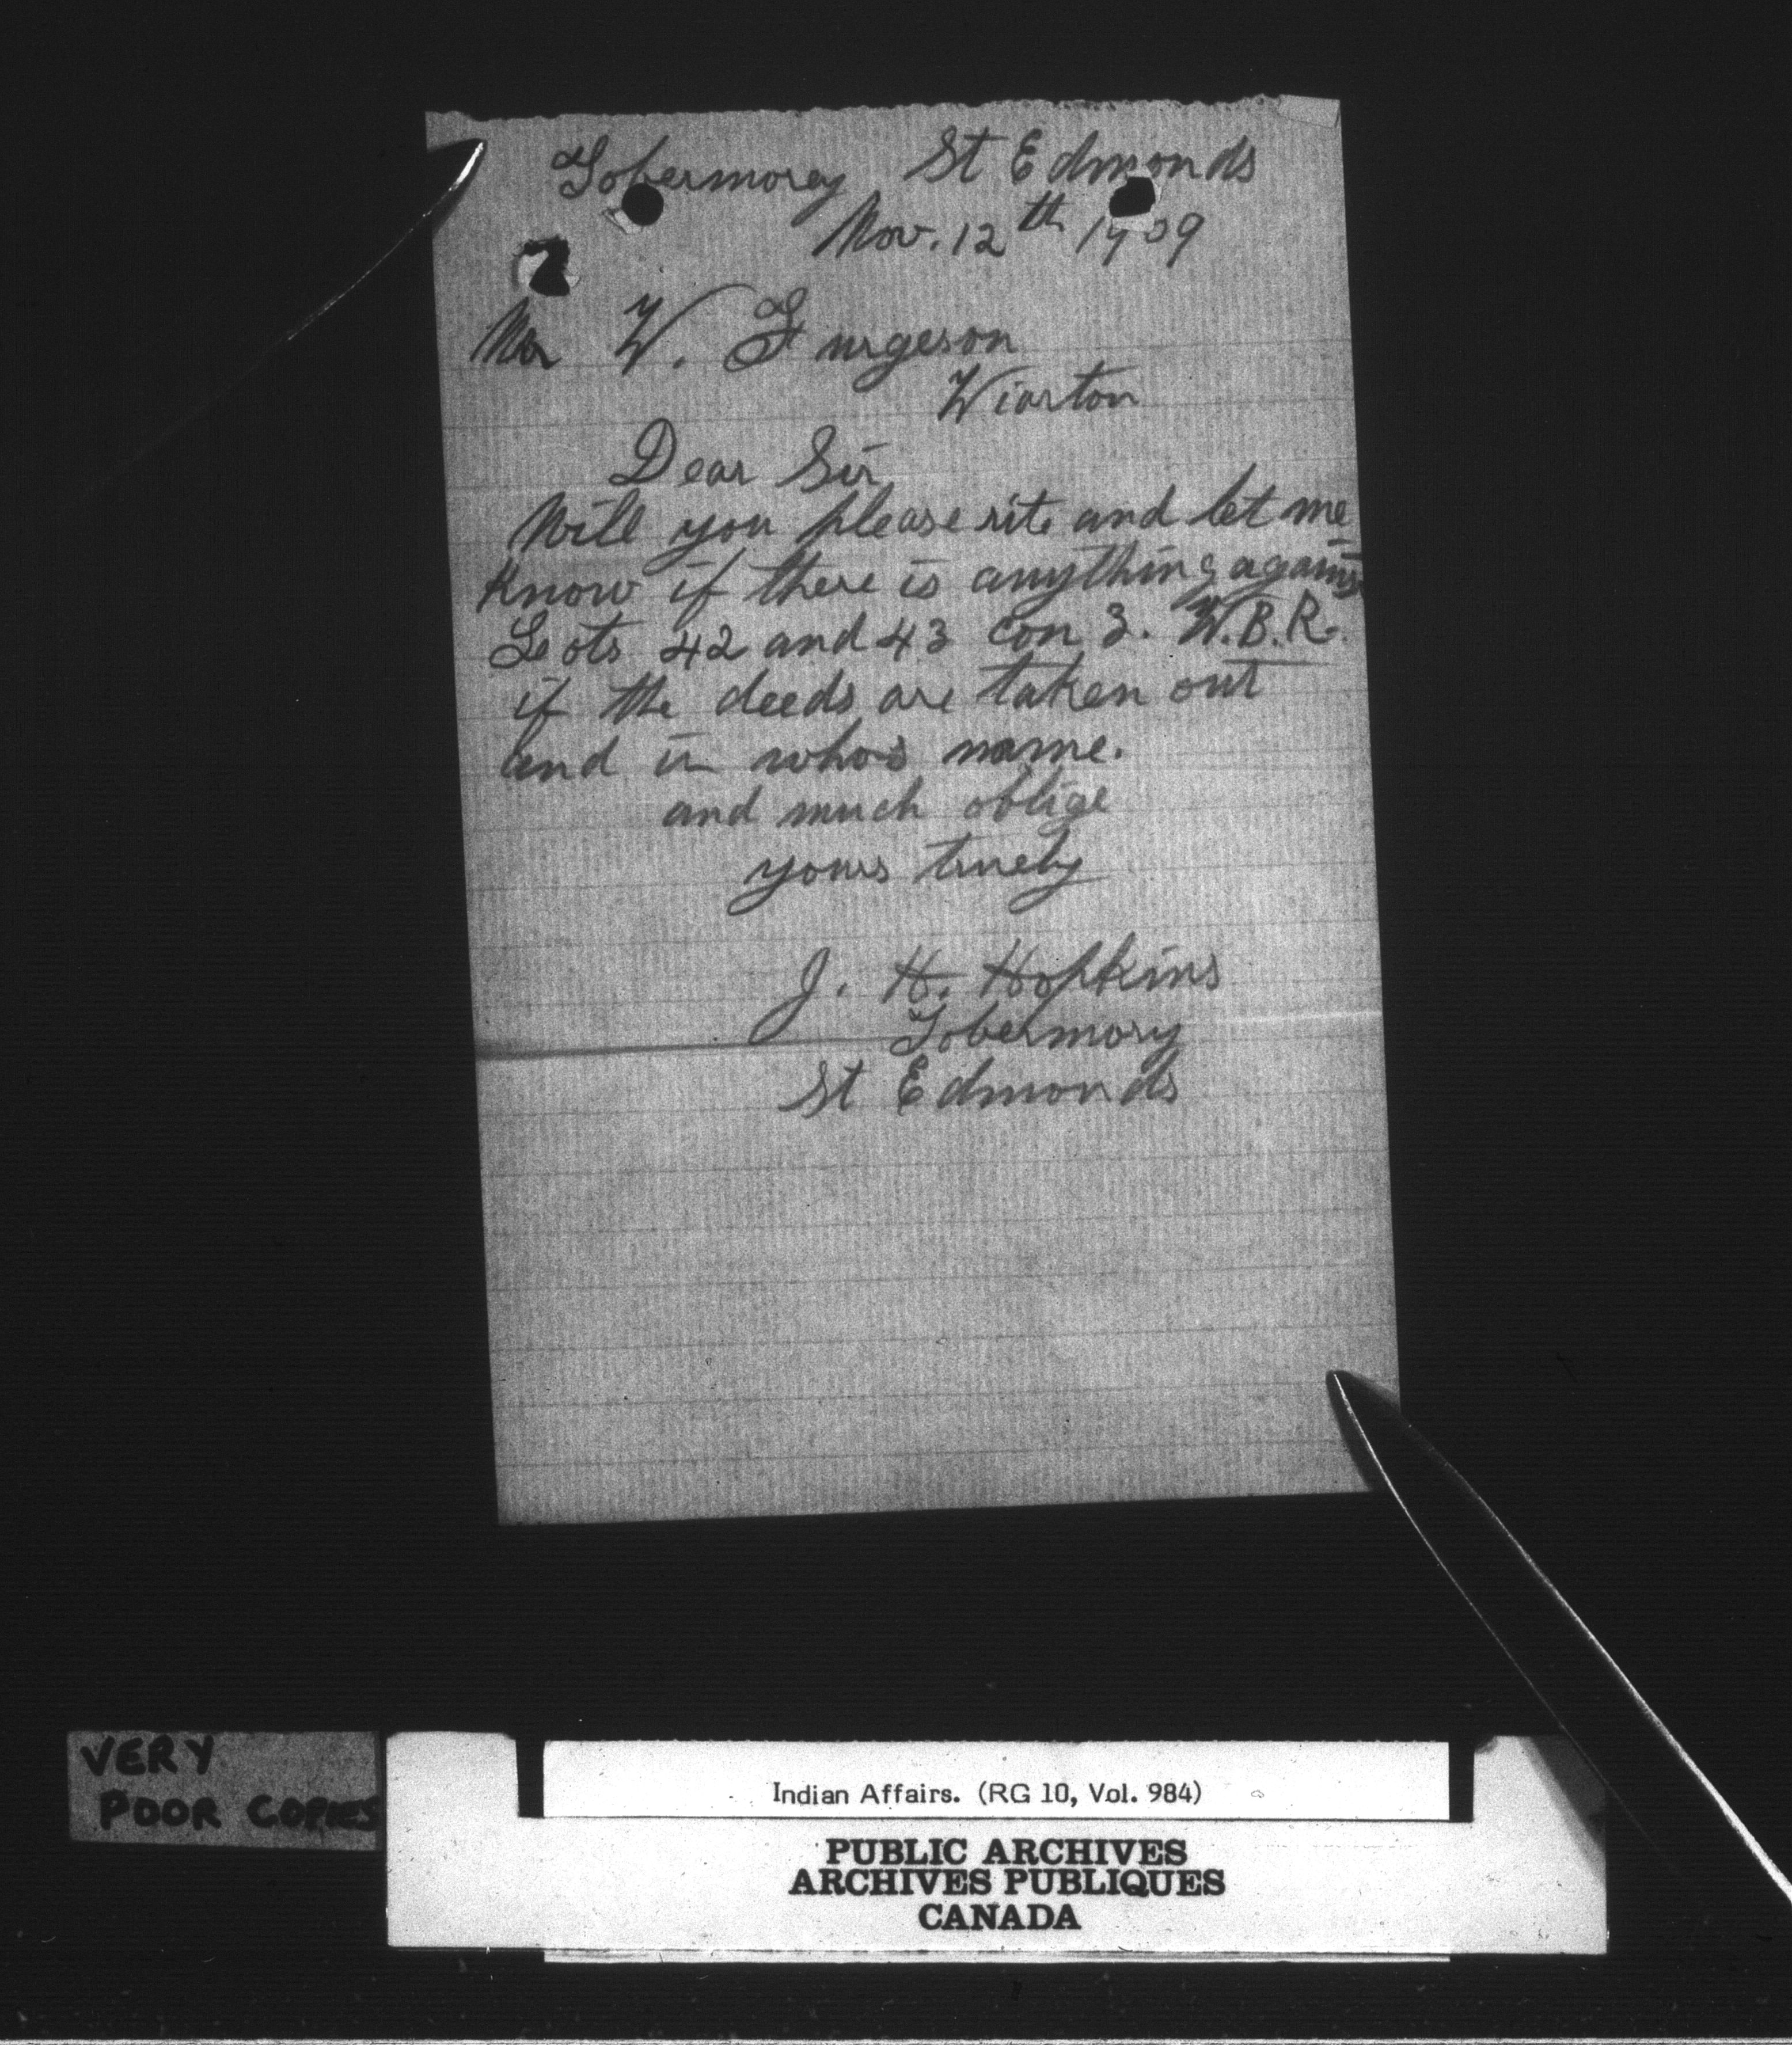 Tobermorey St Edmonds
Nov. 12th 1909
Mr W. Furgeson
Wiarton
Dear Sir
Will you please rite and let me
know if there is anything against
Lots 42 and 43 Con 3. W.B.R.
if the deeds are taken out
and in who's name.
and much oblige
yours truely
J. H. Hopkins
Tobermory
St Edmonds
VERY
POOR COPIES
Indian Affairs. (RG 10, Vol. 984)
PUBLIC ARCHIVES
ARCHIVES PUBLIQUES
CANADA